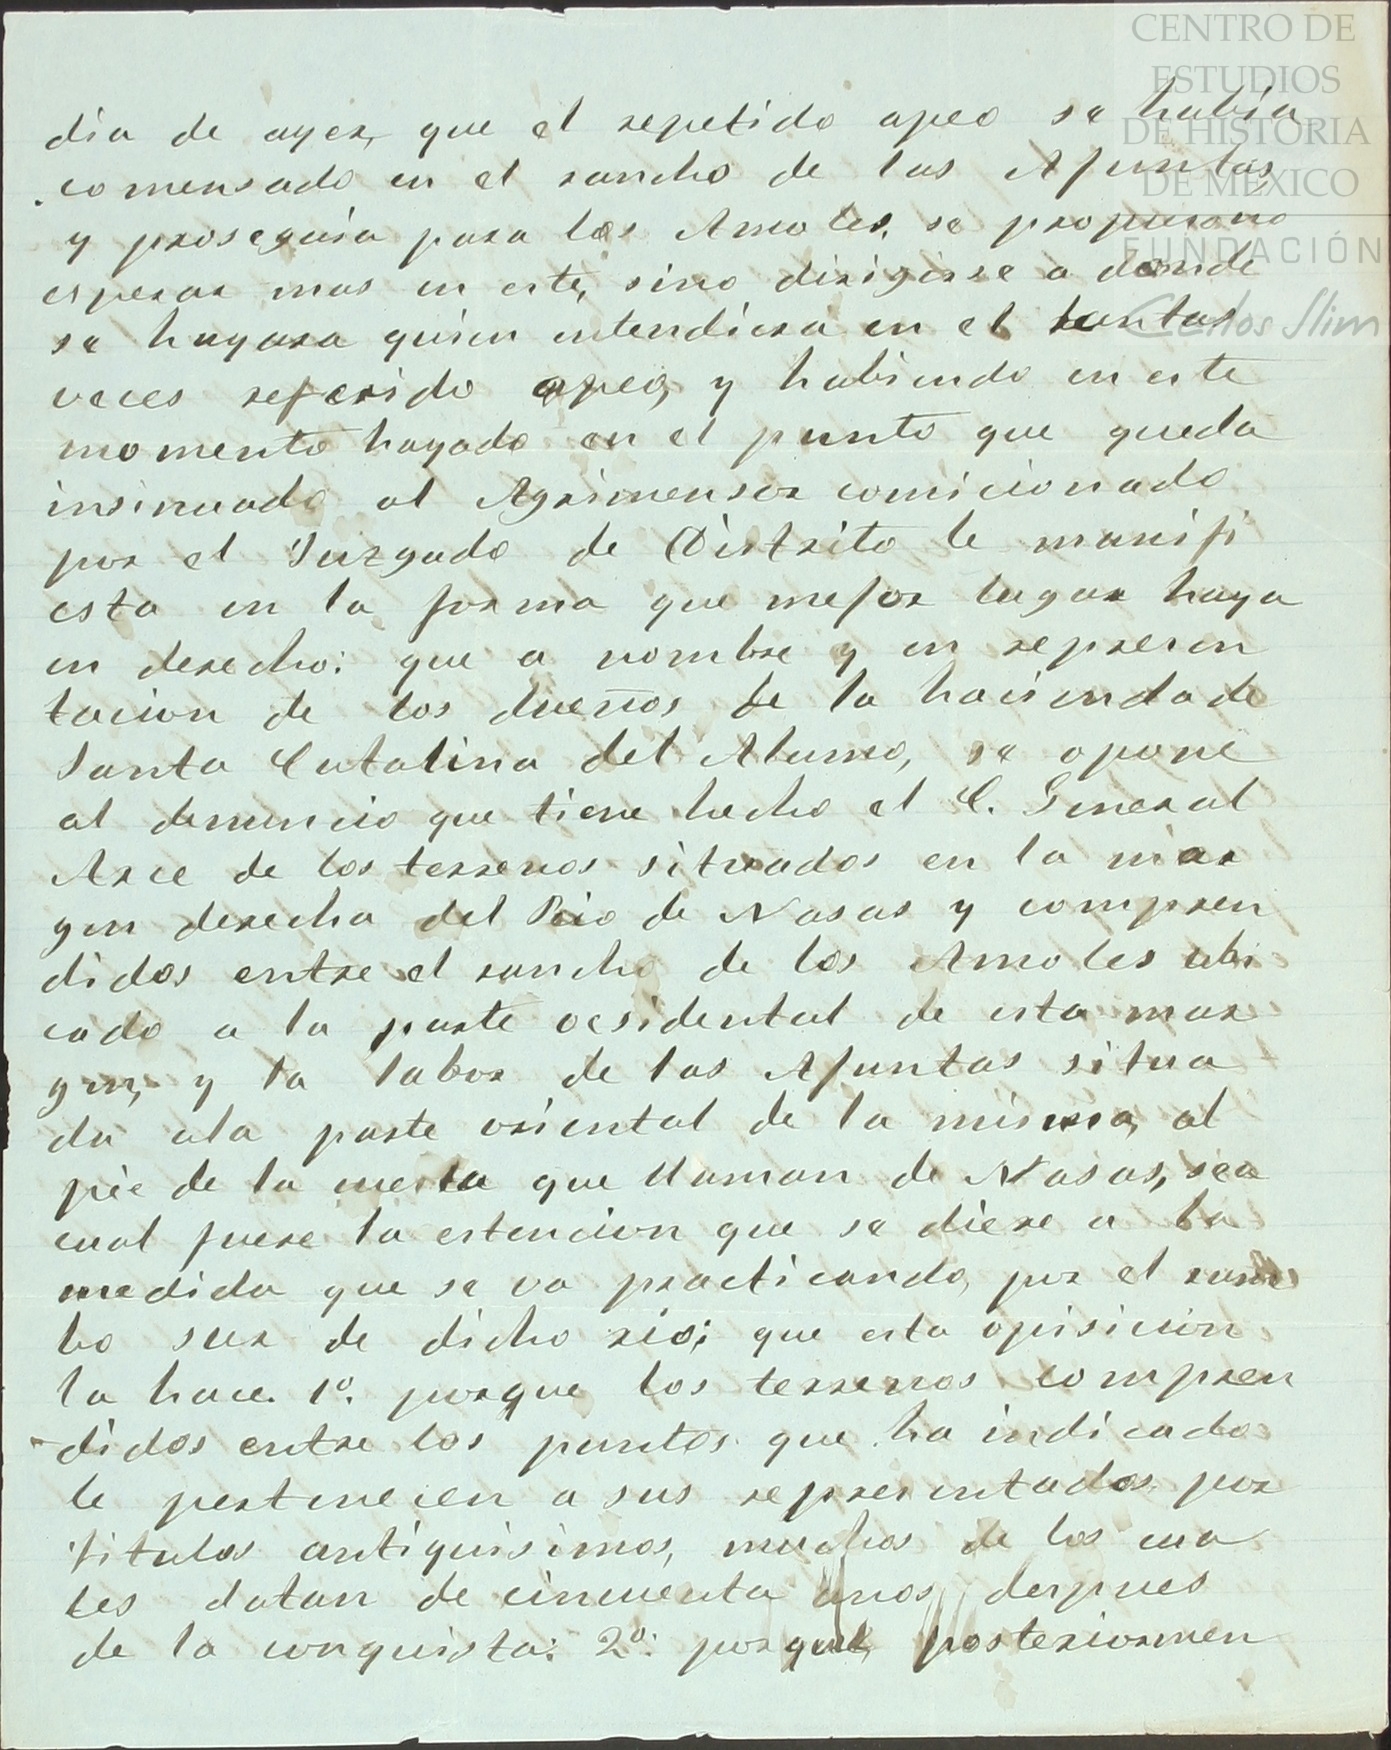 CENTRO DE
ESTUDIOS
DE HISTORIA
DE MÉXICO
FUNDACIÓN
Carlos Slim
dia de ayer, que el repetido apeo se había
comensado en el rancho de las Ajuntas,
y proseguia para los Amoles, se propuso no
esperar mas en este, sino dirigirse a donde
se hayara quien entendiera en el tantas
veces referido apeo, y habiendo en este
momento hayado en el punto que queda
insinuado al Agrimensor comicionado
por el Juzgado de Distrito le manifi
esta en la forma que mejor lugar haya
en derecho: que a nombre y en represen
tacion de los dueños de la hacienda de
Santa Catalina del Alamo, se opone
al denuncio que tiene hecho el C. General
Arce de los terrenos situados en la mar
gen derecha del Rio de Nasas y compren
didos entre el rancho de los Amoles ubi
cado a la parte ocsidental de esta mar
gen, y la labor de las Ajuntas situa
da ala parte oriental de la misma, al
pie de la mesta que llaman de Nasas, sea
cual fuere la estencion que se diere a la
medida que se va practicando, por el rum
bo sur de dicho rio; que esta opisicion
la hace. 1º. porque los terrenos compren
didos entre los puntos que ha indicado
le pertenecen a sus representados por
titulos antiquisimos, muchos de los cua
les datan de cincuenta anos despues
de la conquista: 2º: porque, posteriormen